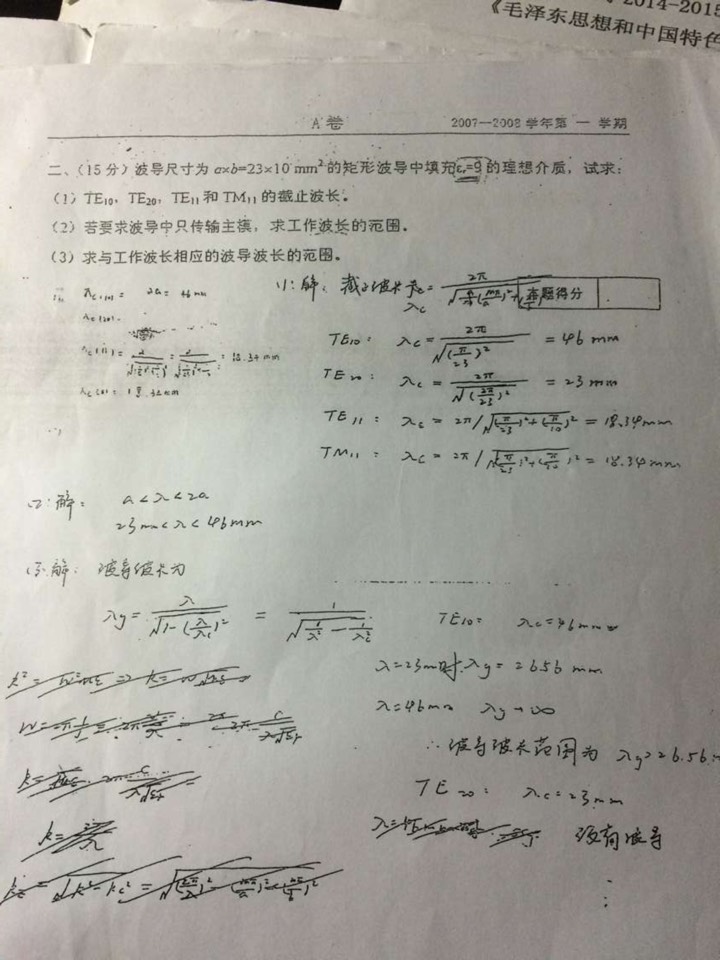 2014-2015
《毛泽东思想和中国特色
A卷 2007--2008 学年第 一 学期
二、(15分) 波导尺寸为 a×b=23×10 mm² 的矩形波导中填充εr=9 的理想介质，试求：
(1) TE₁₀，TE₂₀，TE₁₁ 和 TM₁₁ 的截止波长。
(2) 若要求波导中只传输主模，求工作波长的范围。
(3) 求与工作波长相应的波导波长的范围。
本题得分
(1): 解: 截止波长 λc = 2π
λc(10) = 2a = 46 mm
λc(20)
λc(11) = = = 18.34 mm
TE10: λc = 2π/√(π/23)² = 46 mm
TE20: λc = 2π/√(2π/23)² = 23 mm
TE11: λc = 2π/√(π/23)²+(π/10)² = 18.34mm
TM11: λc = 2π/√(π/23)²+(π/10)² = 18.34mm
(2): 解: a<λ<2a
23mm<λ<46mm
(3): 解: 波导波长为
λg = λ/√1-(λ/λc)² = 1/√1/λ²-1/λc²
TE10: λc=46mm
λ=23mm时 λg = 26.56 mm
λ=46mm λg→∞
∴ 波导波长范围为 λg>26.56
TE20: λc=23mm
没有波导